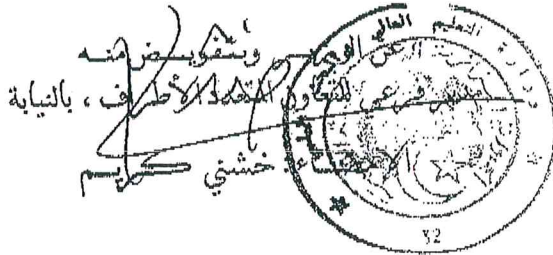 عن الوزير وبتفويض منه
مدير فرعي للتعاون المتعدد الأطراف ، بالنيابة
الإمضاء: خشني كريم
وزارة التعليم العالي
32